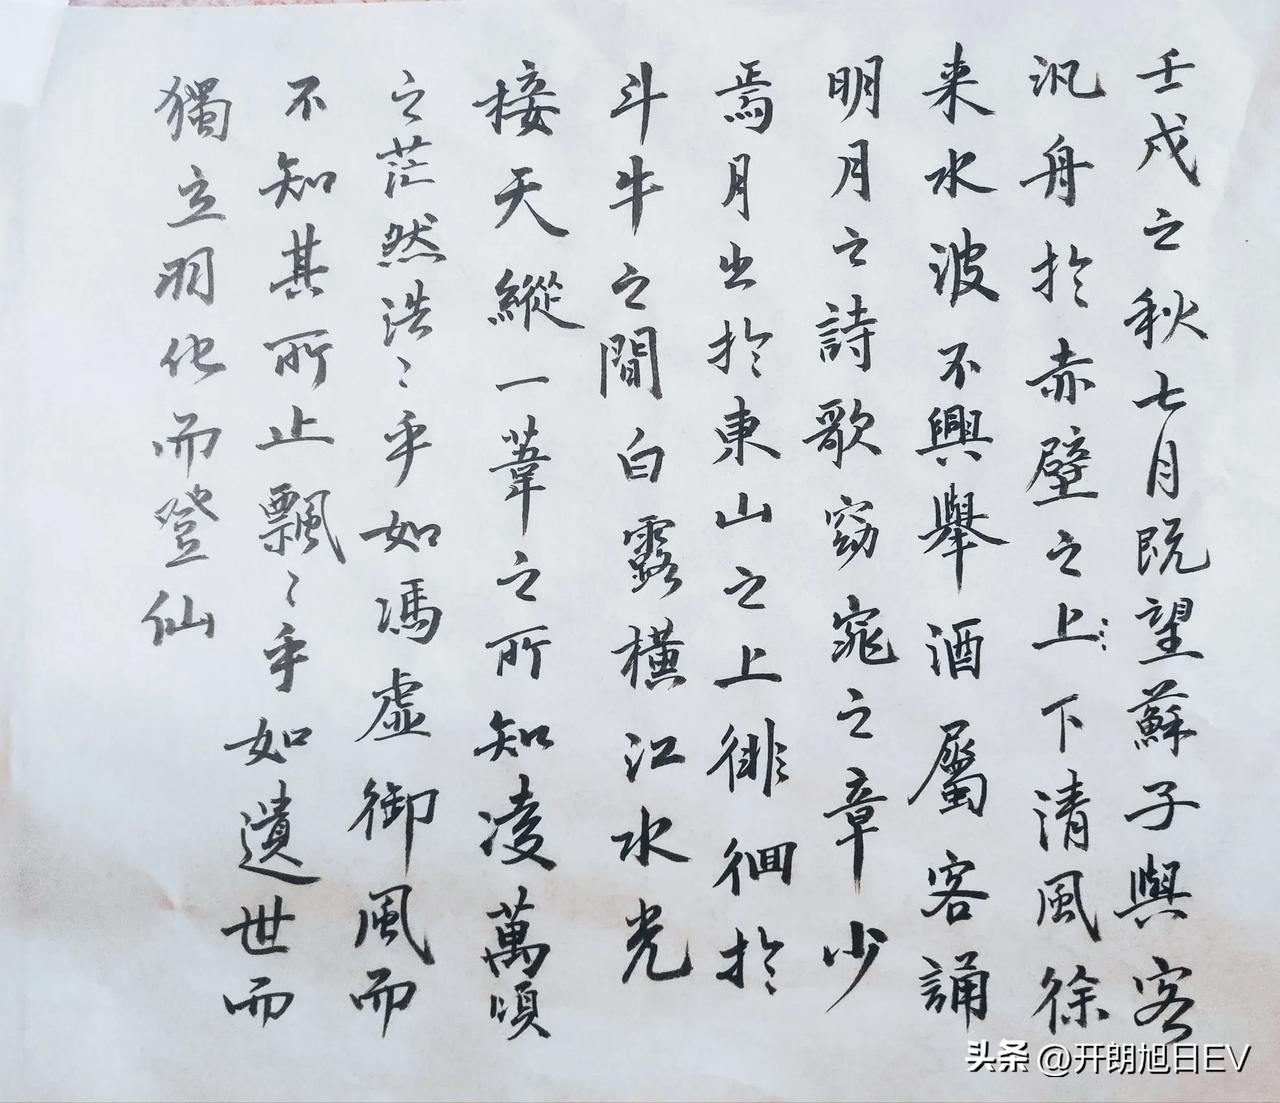 壬戌之秋七月既望蘇子與客
汎舟於赤壁之上下清風徐
来水波不興舉酒屬客誦
明月之詩歌窈窕之章少
焉月出於東山之上徘徊於
斗牛之間白露橫江水光
接天縱一葦之所知凌萬頃
之茫然浩〻乎如馮虛御風而
不知其所止飄〻乎如遺世而
獨立羽化而登仙
头条 @开朗旭日EV